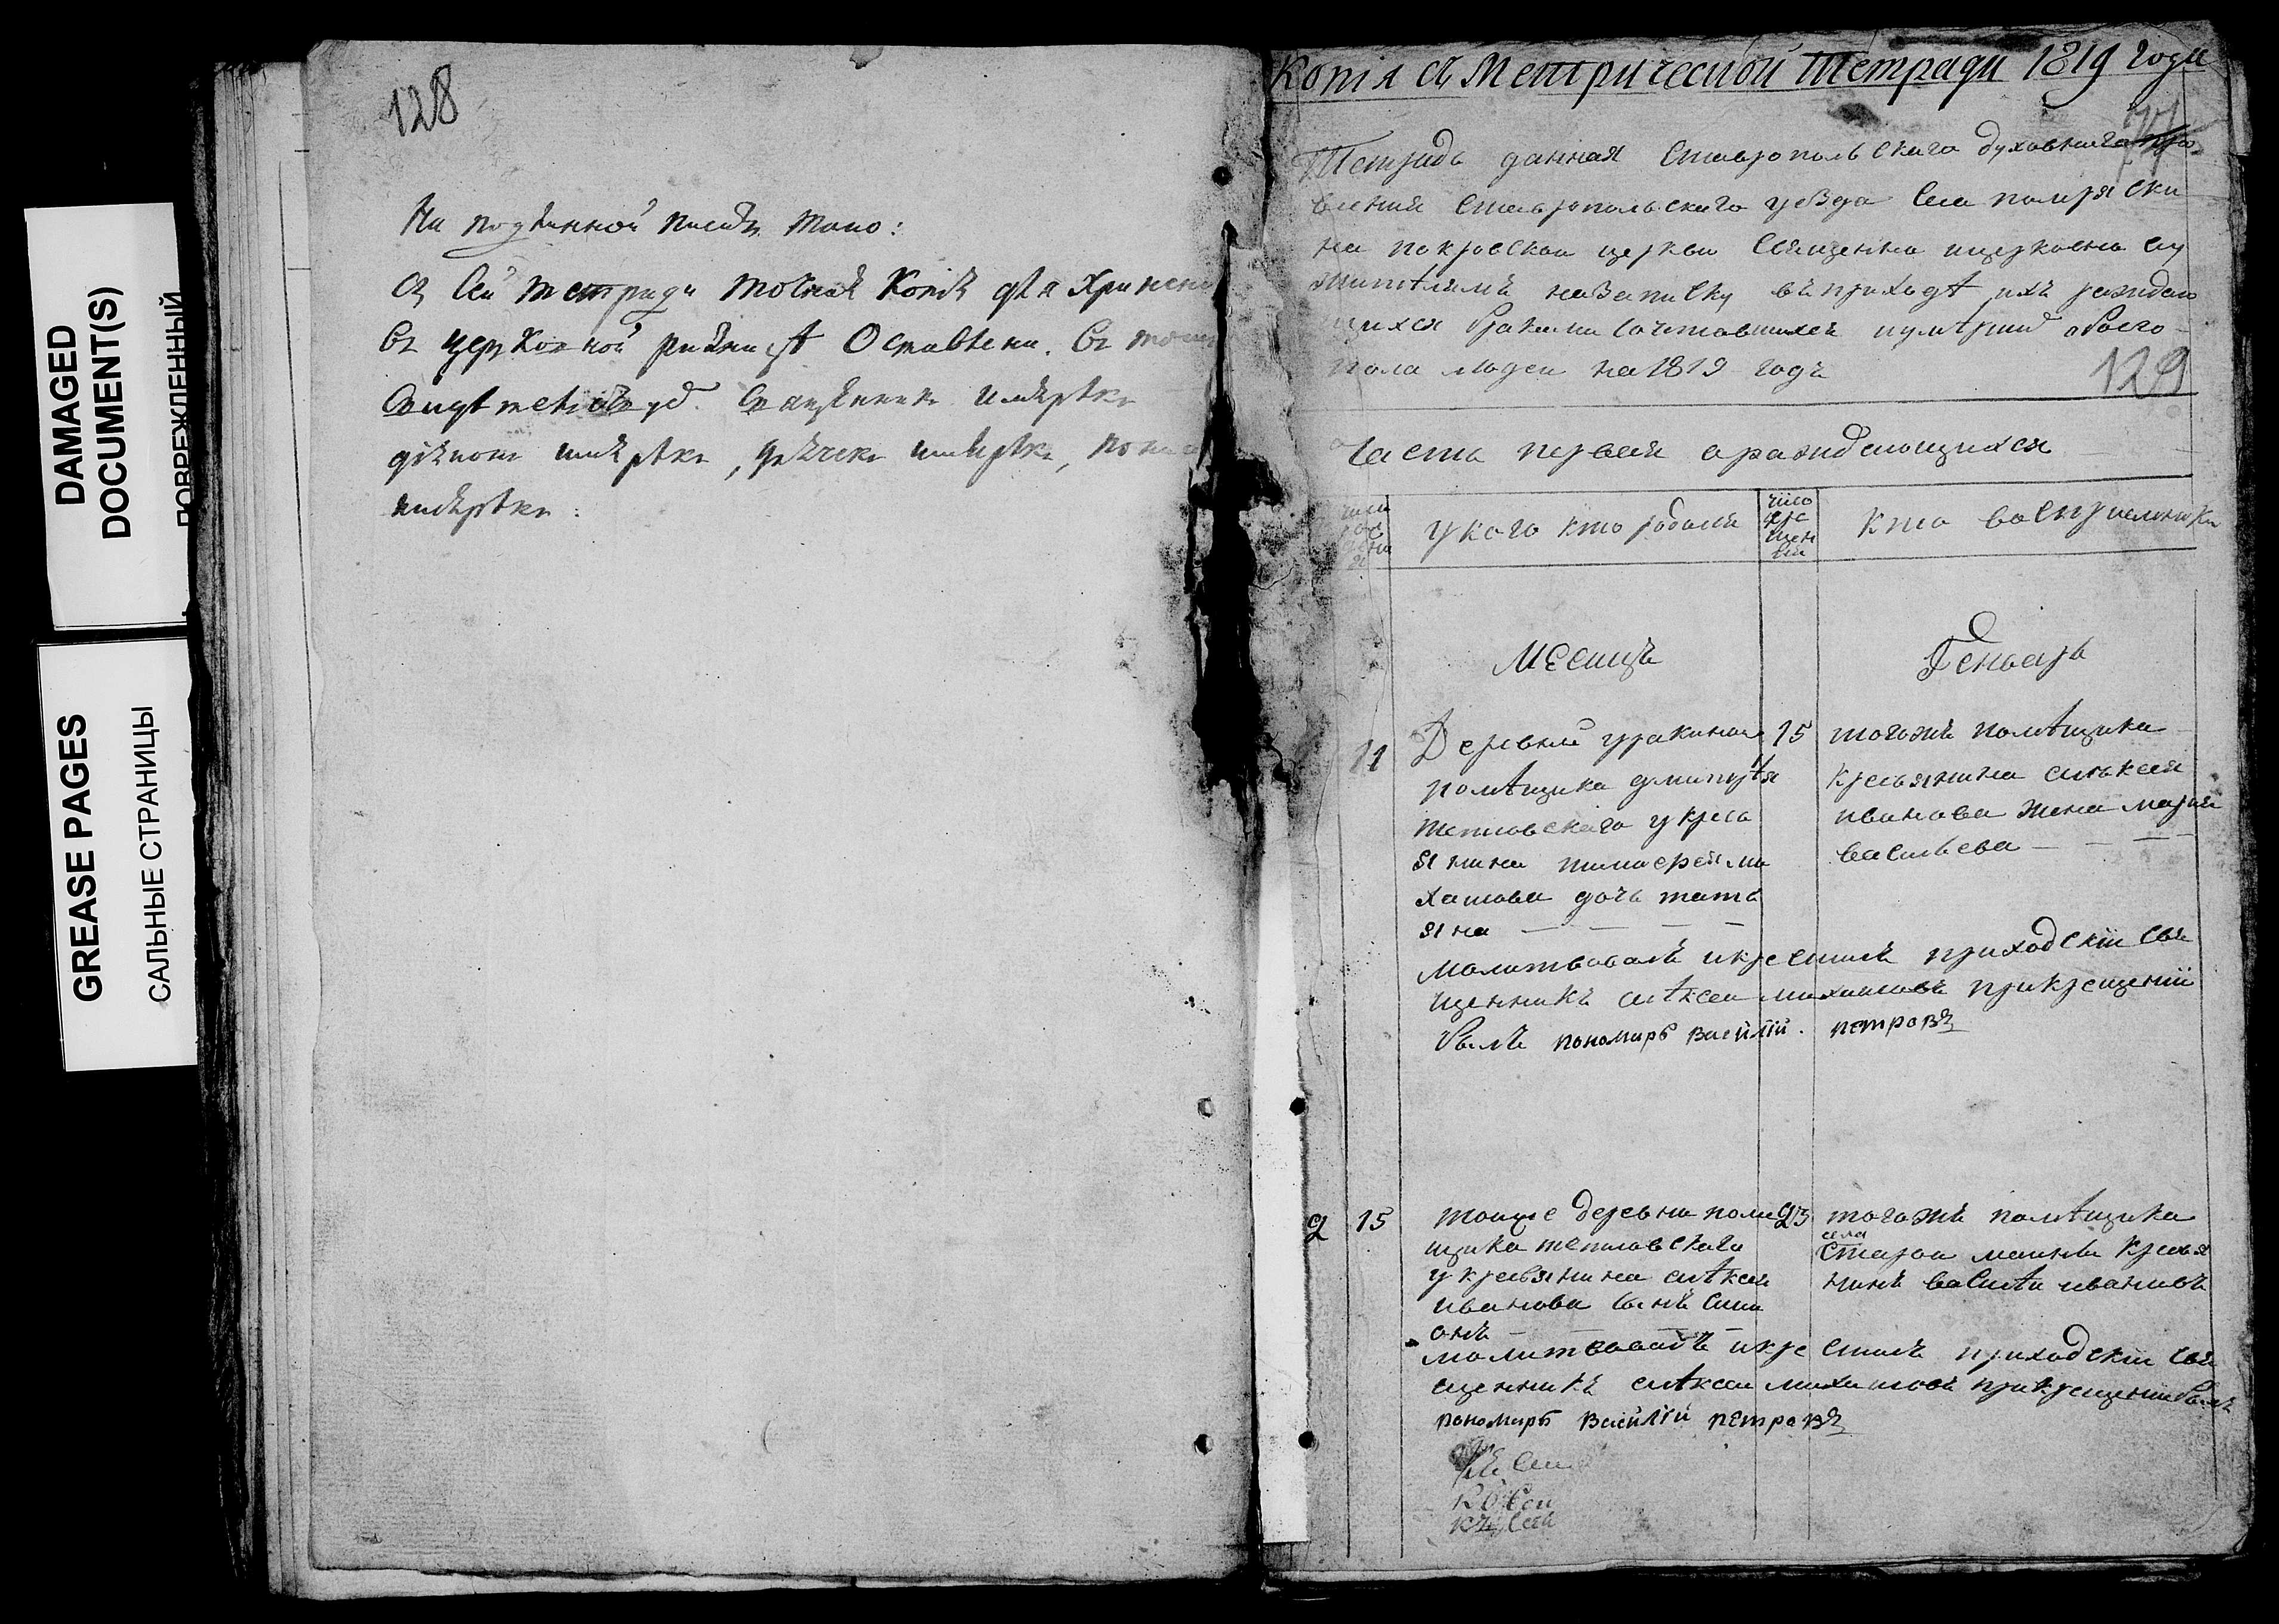 DAMAGED
DOCUMENT(S)
ПОВРЕЖДЕННЫЙ
GREASE PAGES
САЛЬНЫЕ СТРАНИЦЫ
128
На подлинной писано тако:
Съ сей тетради точная копія для хранени
въ церковной ризницѣ оставлена. въ томъ
священникъ имярекъ
діаконъ имярекъ, дьячекъ имярекъ, поно
имярекъ:
Копія съ Метрической Тетради 1819 года
Тетрадь данная Ставропольскаго духовнаго пра
вленія Ставропольскаго уѣзда села
на покровской церкви священно ицерковно слу
жителямъ назаписку въ приходѣ ихъ раждаю
щихся браками сочетавшихся иумершихъ обоего
пола людей на 1819 годъ
129
Часть первая ораждающихся
число
рож
дени
я
у кого кто родился
число
кре
щен
ія
кто воспріемники
месяцъ
Генварь
11
Деревни уракиной
помѣщика дмитрѣя
тепловскаго у кресь
янина тимоѳея ми
хаилова дочь тать
яна
15
тогожъ помѣщика
кресьянина алѣксея
иванова жена марья
васильева
Молитвовалъ икрестилъ приходскіи свя
щенникъ алѣксеи михаиловъ прикрещеніи
былъ пономарь василіи петровъ
2
15
тоиже деревни поме
щика тепловскаго
у кресьянина алѣксея
иванова сынъ сими
онъ
25
тогожъ помѣщика
села
Старои маины кресья
нинъ василѣи ивановъ
молитвовалъ икрестилъ приходскіи свя
щенникъ алѣксеи михаиловъ прикрещеніи былъ
пономарь василіи петровъ